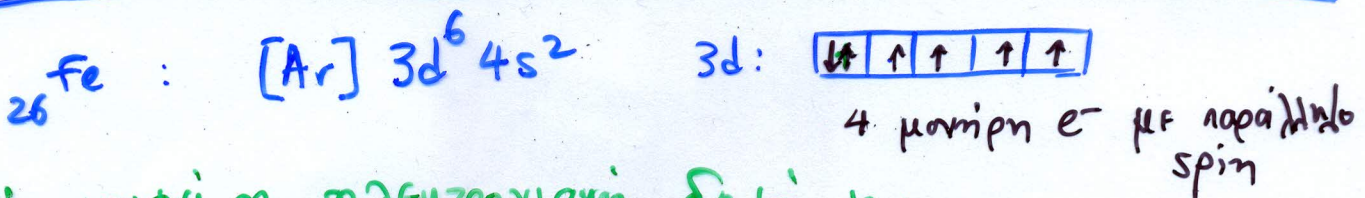 ₂₆Fe : [Ar] 3d⁶ 4s² 3d: ↓↑ ↑ ↑ ↑ ↑
4 μονήρη e⁻ με παράλληλο
spin